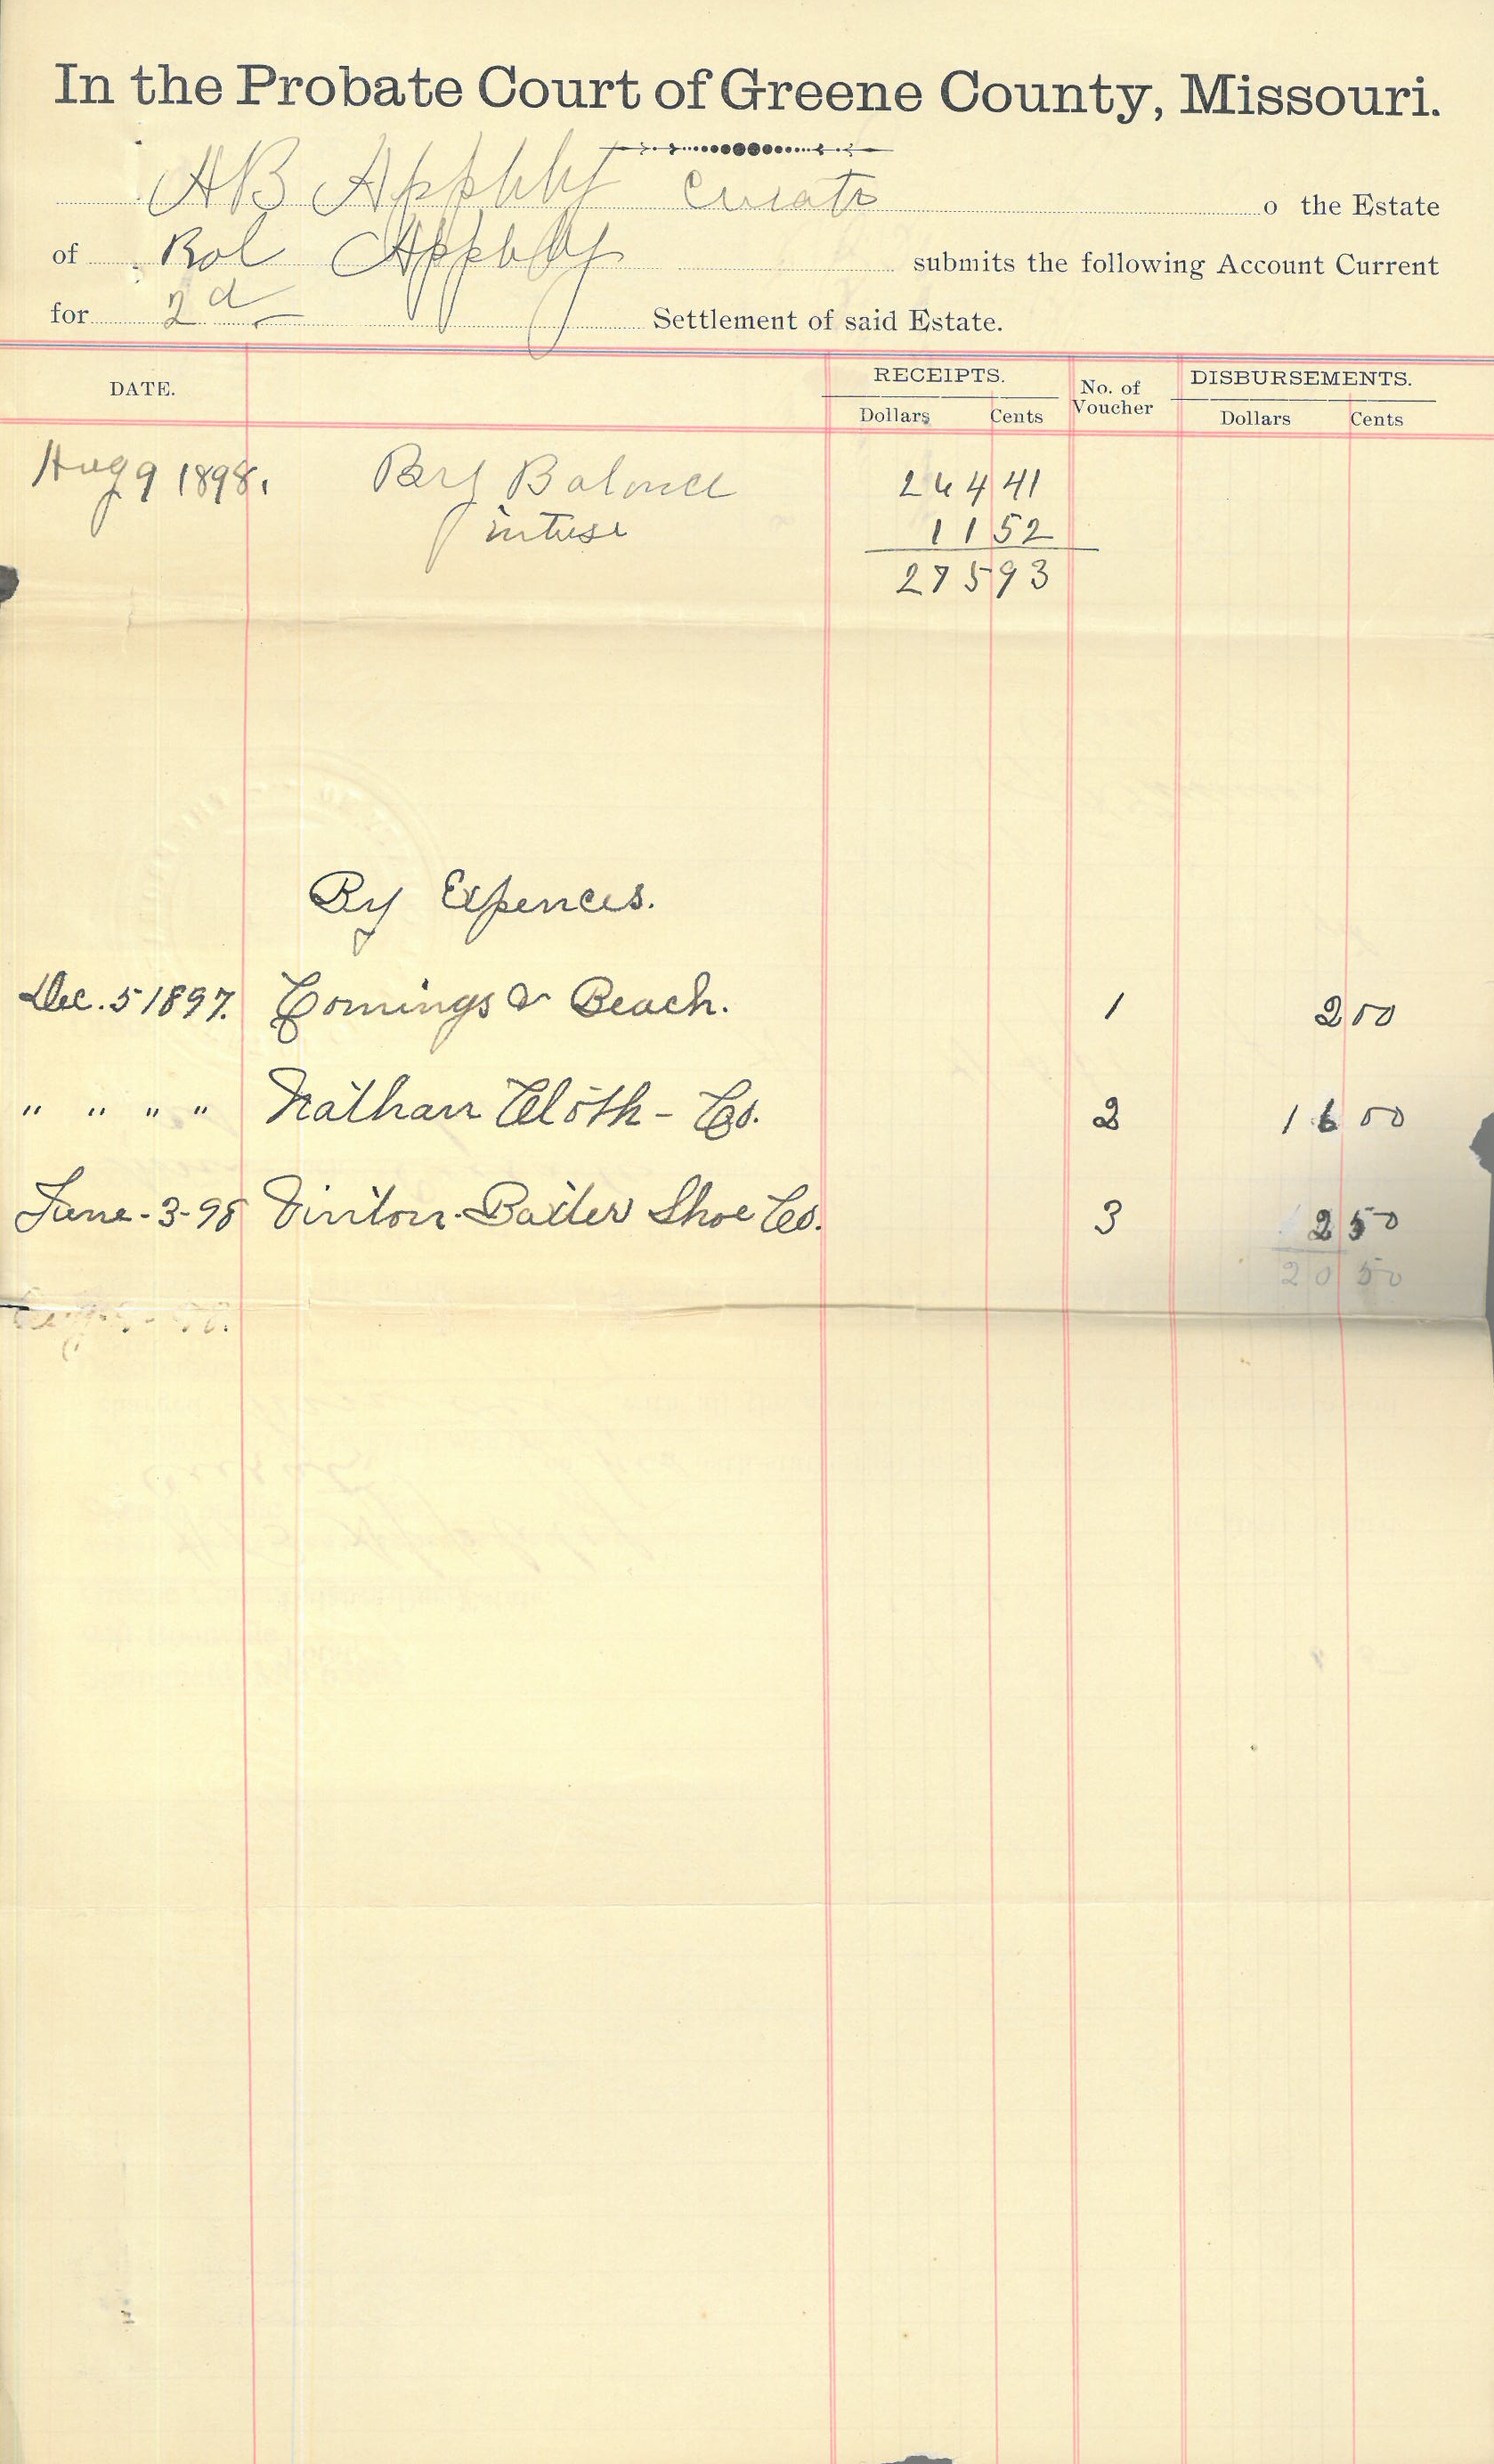 In the Probate Court of Greene County, Missouri.
AB Appleby Curato o the Estate
of Rol Appleby submits the following Account Current
for 2d Settlement of said Estate.
DATE. RECEIPTS. No. of Voucher DISBURSEMENTS.
Dollars Cents Dollars Cents
Aug 9 1898. By Balance 264 41
intrse 11 52
275 93
By Expences.
Dec. 5 1897. Comings & Beach. 1 2 00
" " " " Nathan Cloth - Co. 2 16 00
June - 3 - 98 Vinton - Baxter Shoe Co. 3 2 50
20 50